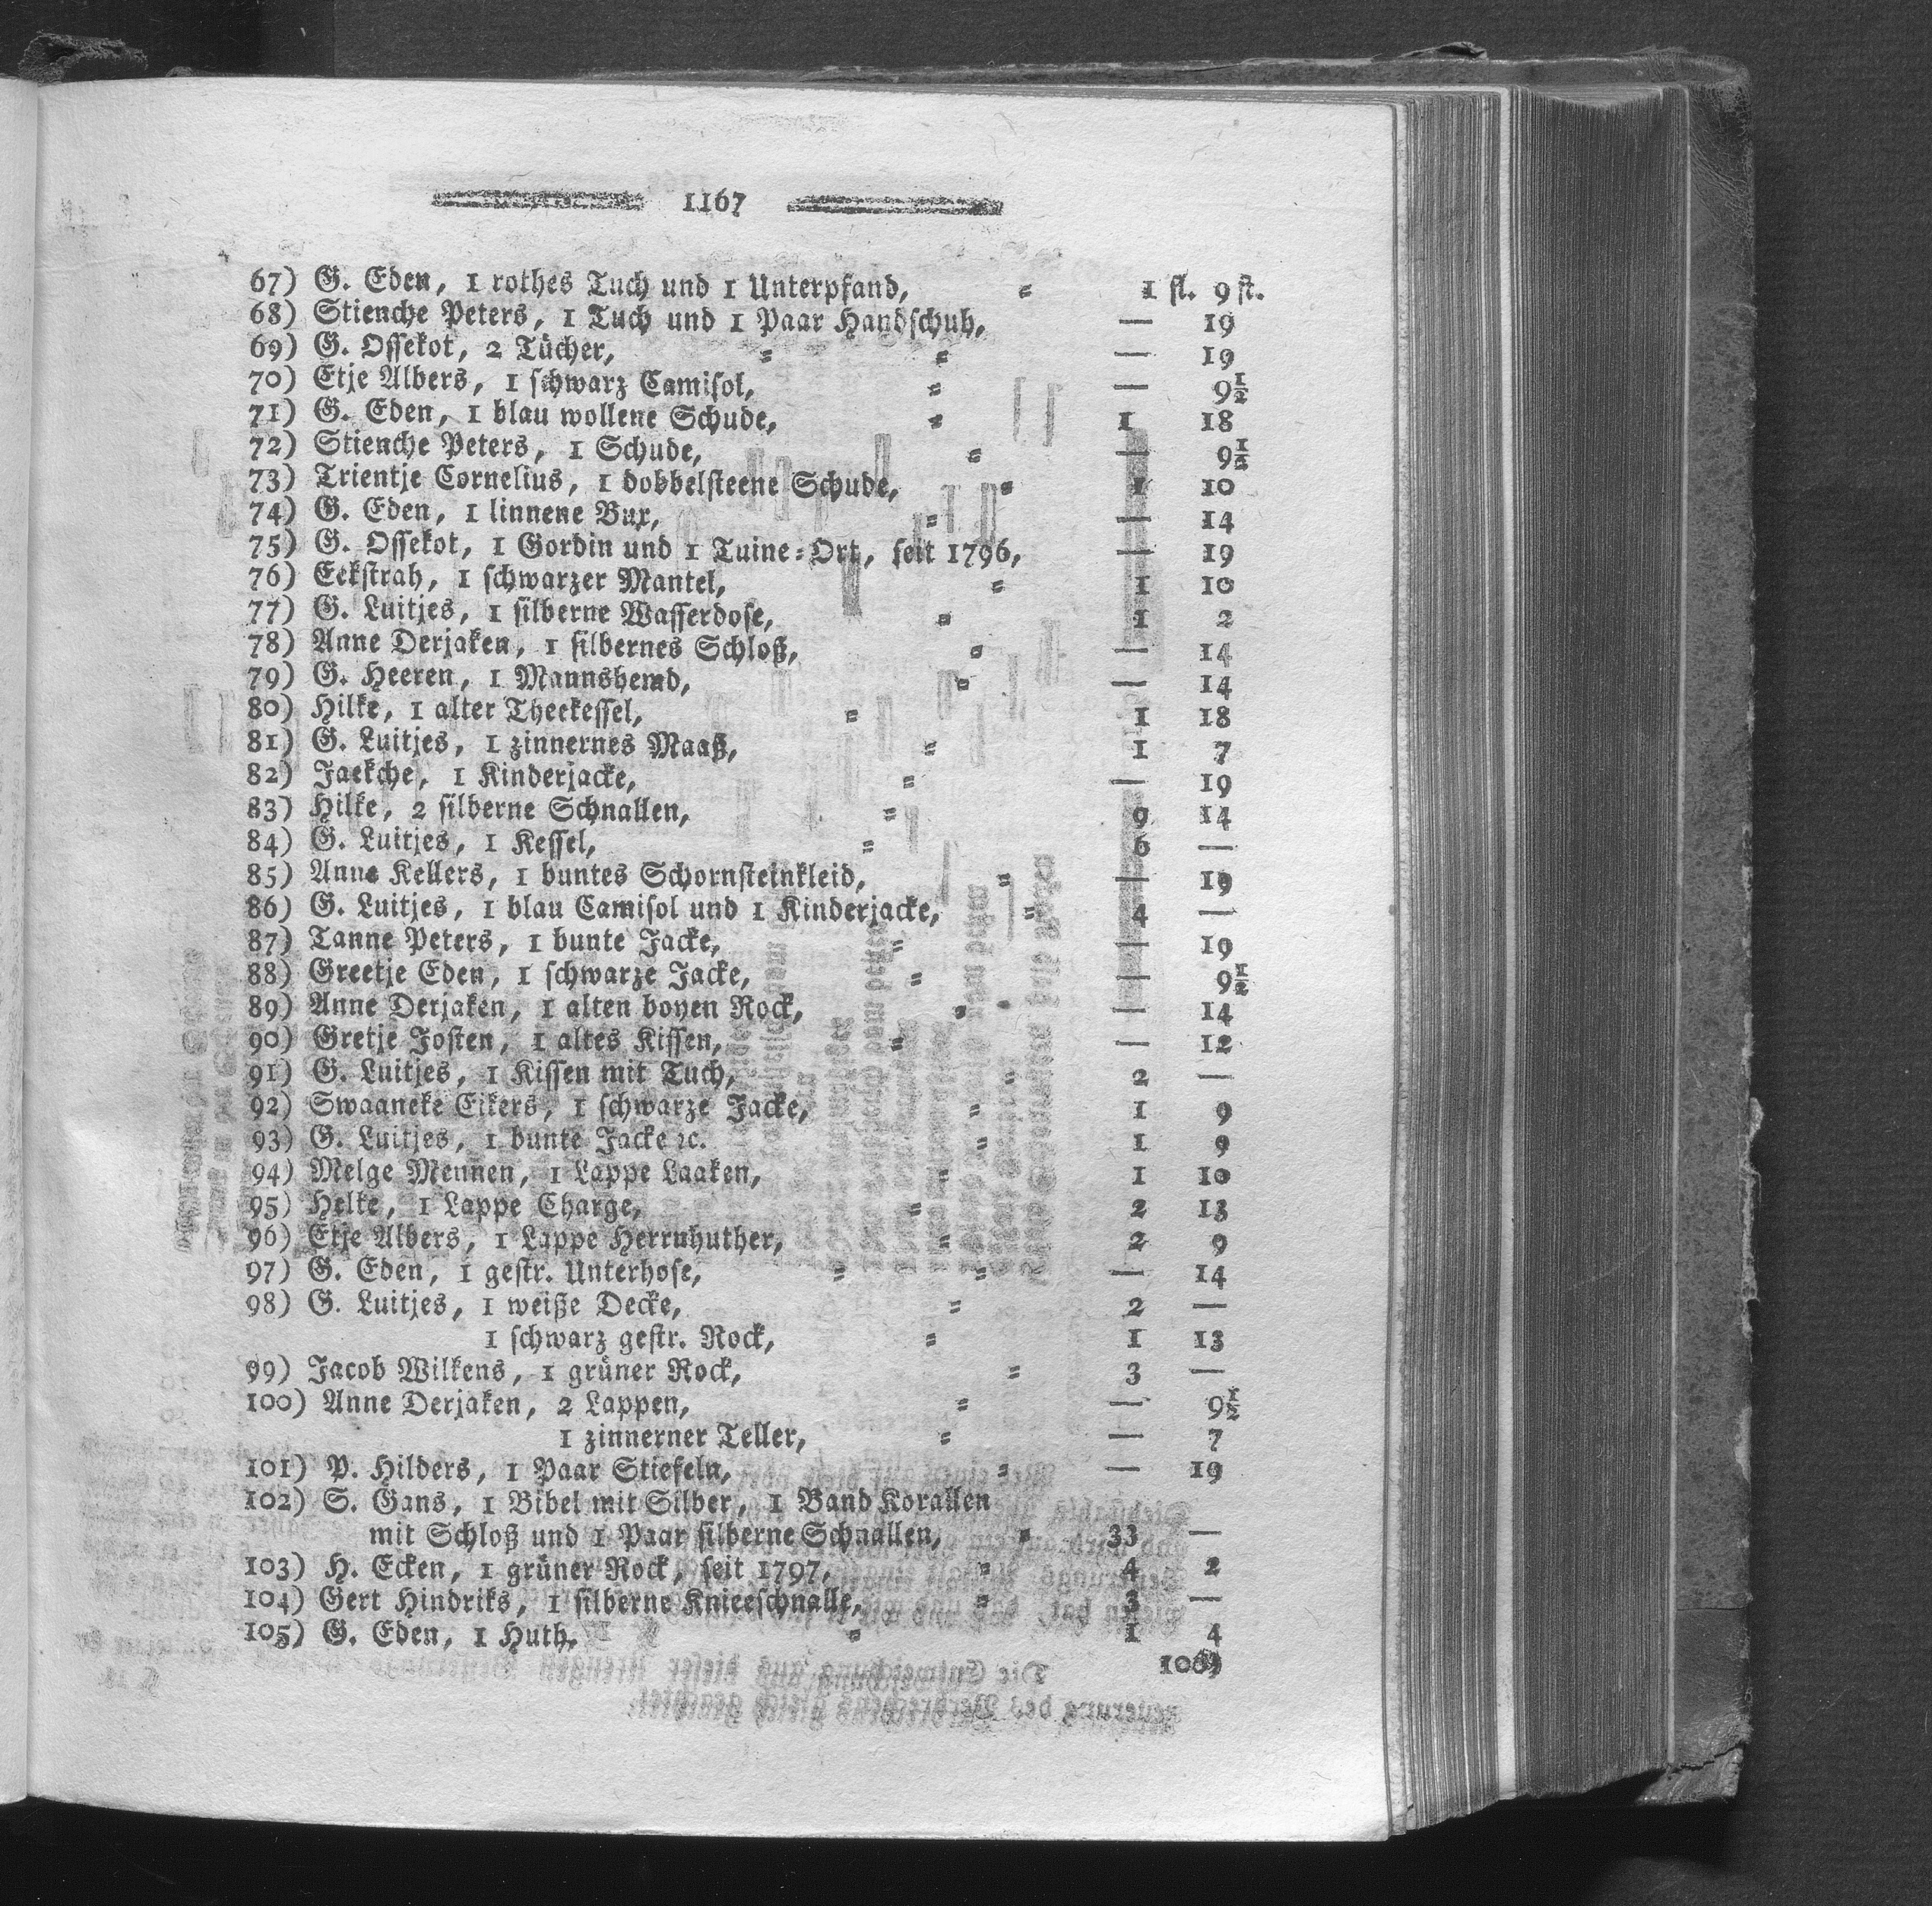 1167
67) G. Eden, 1 rothes Tuch und 1 Unterpfand, = 1 fl. 9 st.
68) Stienche Peters, 1 Tuch und 1 Paar Handschuh, — 19
69) G. Ossekot, 2 Tücher, = = — 19
70) Etje Albers, 1 schwarz Camisol, = — 9½
71) G. Eden, 1 blau wollene Schude, = 1 18
72) Stienche Peters, 1 Schude, = — 9½
73) Trientje Cornelius, 1 dobbelsteene Schude, = 1 10
74) G. Eden, 1 linnene Bux, = — 14
75) G. Ossekot, 1 Gordin und 1 Tuine=Ort, seit 1796, — 19
76) Eekstrah, 1 schwarzer Mantel, = 1 10
77) G. Luitjes, 1 silberne Wasserdose, = 1 2
78) Anne Derjaken, 1 silbernes Schloß, = — 14
79) G. Heeren, 1 Mannshemd, = — 14
80) Hilke, 1 alter Theekessel, = 1 18
81) G. Luitjes, 1 zinnernes Maaß, = 1 7
82) Jaekche, 1 Kinderjacke, = — 19
83) Hilke, 2 silberne Schnallen, = 9 14
84) G. Luitjes, 1 Kessel, = 6 —
85) Anne Kellers, 1 buntes Schornsteinkleid, = — 19
86) G. Luitjes, 1 blau Camisol und 1 Kinderjacke, = 4 —
87) Tanne Peters, 1 bunte Jacke, = — 19
88) Greetje Eden, 1 schwarze Jacke, = — 9½
89) Anne Derjaken, 1 alten boyen Rock, = — 14
90) Gretje Josten, 1 altes Kissen, = — 12
91) G. Luitjes, 1 Kissen mit Tuch, = 2 —
92) Swaaneke Eikers, 1 schwarze Jacke, = 1 9
93) G. Luitjes, 1 bunte Jacke ꝛc. = 1 9
94) Melge Mennen, 1 Lappe Laaken, = 1 10
95) Helke, 1 Lappe Charge, = 2 13
96) Etje Albers, 1 Lappe Herrnhuther, = 2 9
97) G. Eden, 1 gestr. Unterhose, = = — 14
98) G. Luitjes, 1 weiße Decke, = 2 —
1 schwarz gestr. Rock, = 1 13
99) Jacob Wilkens, 1 grüner Rock, = 3 —
100) Anne Derjaken, 2 Lappen, = — 9½
1 zinnerner Teller, = — 7
101) P. Hilders, 1 Paar Stiefeln, = — 19
102) S. Gans, 1 Bibel mit Silber, 1 Band Korallen
mit Schloß und 1 Paar silberne Schnallen, = 33 —
103) H. Ecken, 1 grüner Rock, seit 1797, = 4 2
104) Gert Hindriks, 1 silberne Knieeschnalle, = 3 —
105) G. Eden, 1 Huth, = 1 4
106)